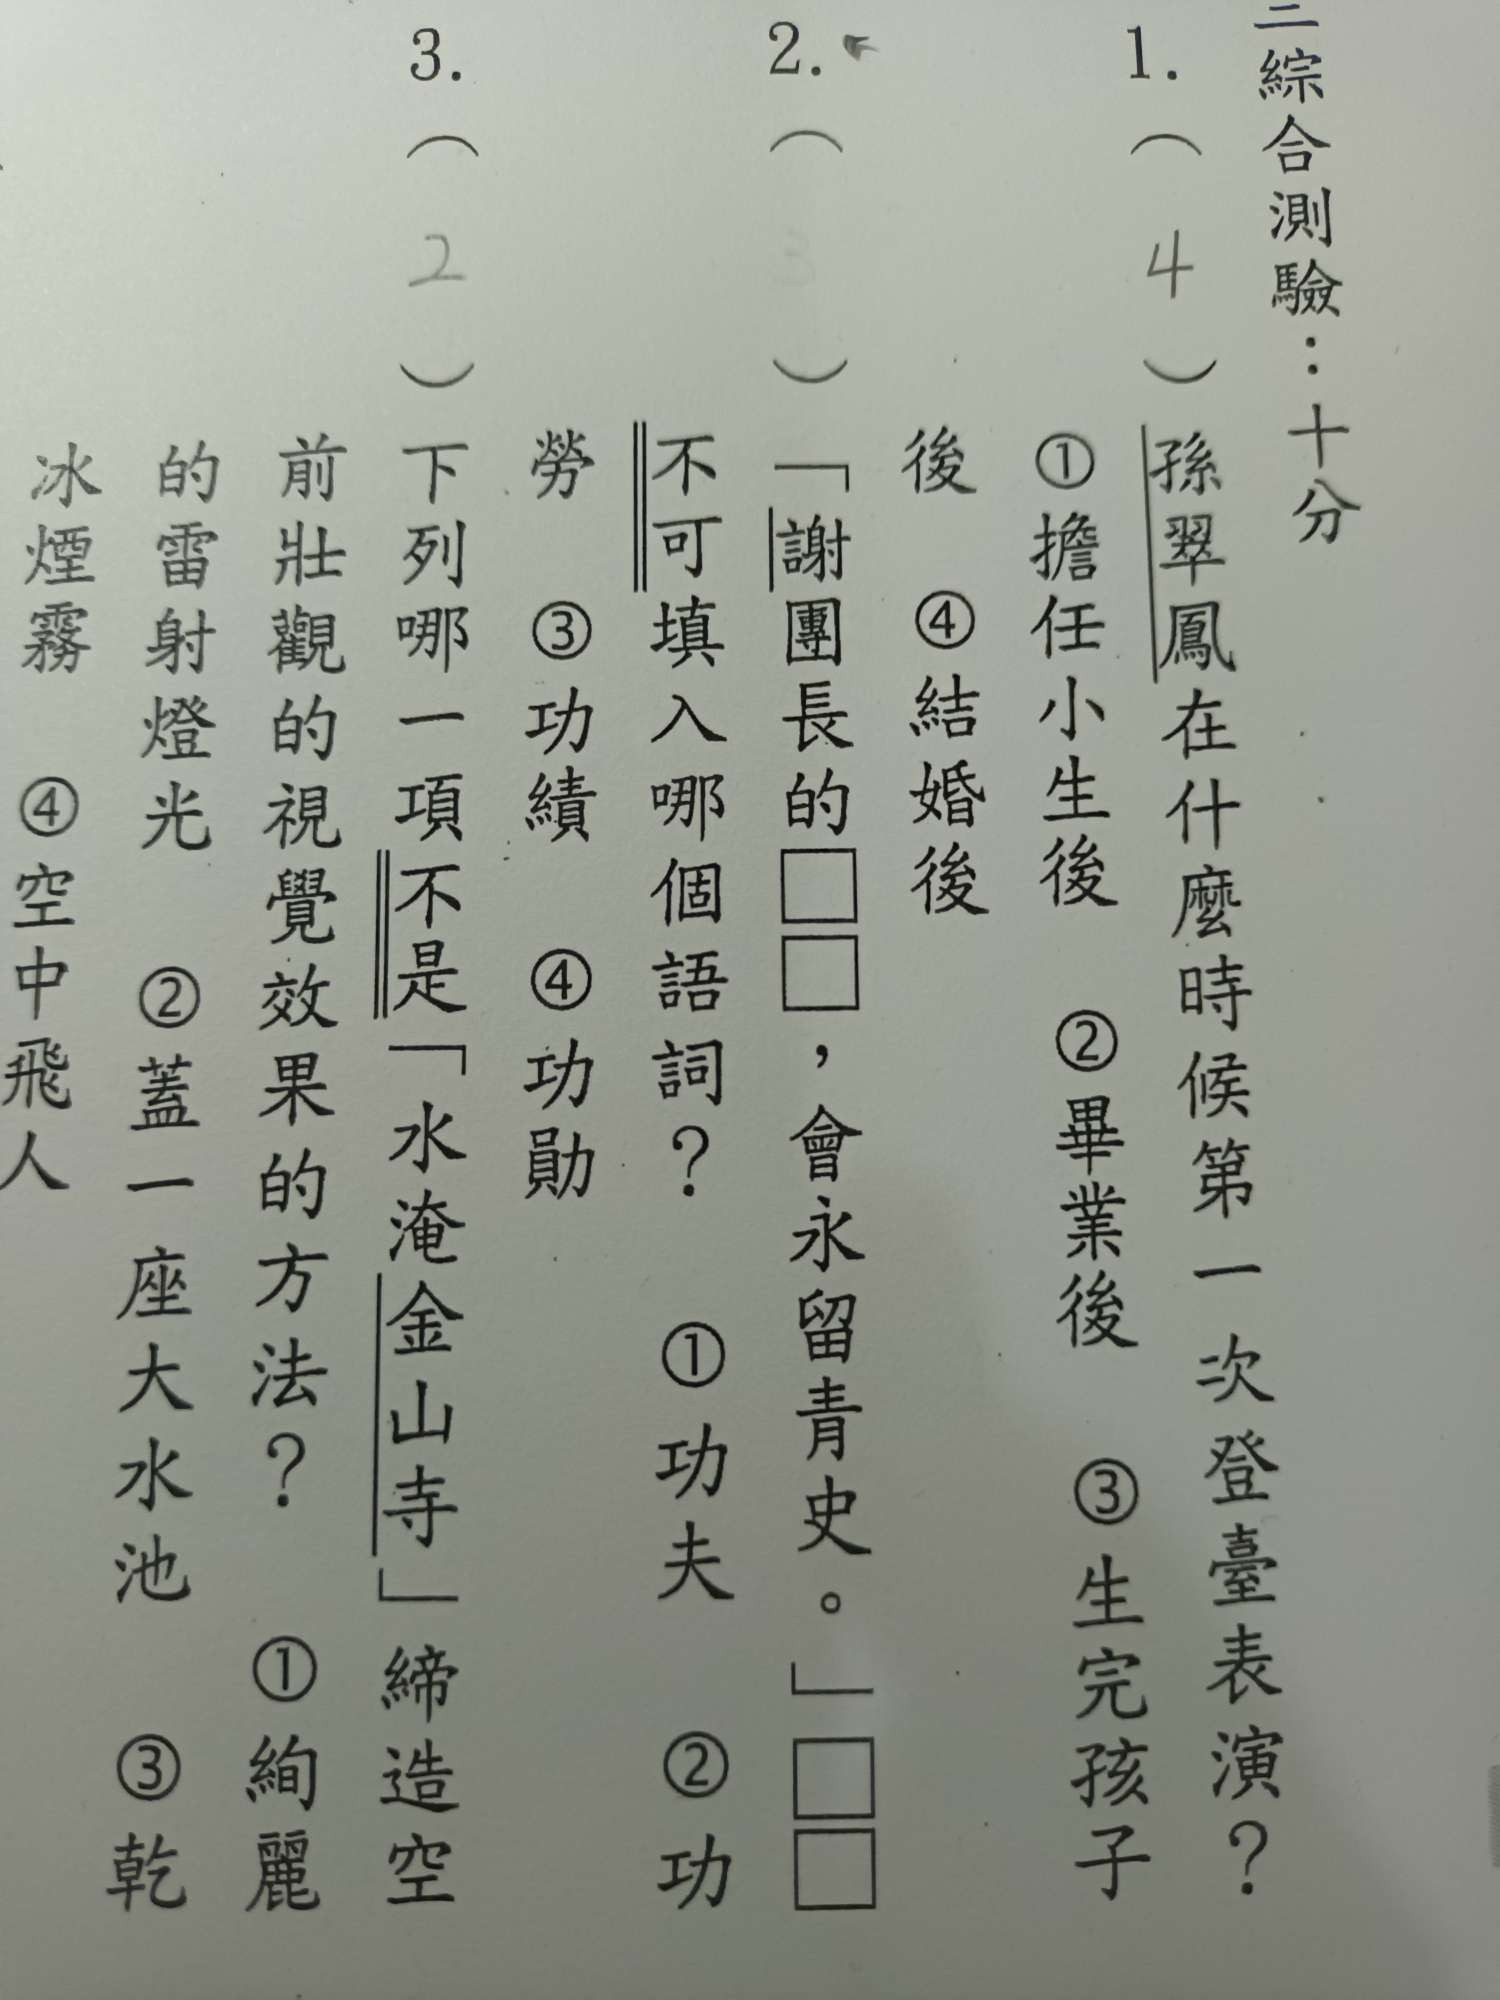 三綜合測驗：十分
1.（ 4 ）孫翠鳳在什麼時候第一次登臺表演？
①擔任小生後 ②畢業後 ③生完孩子
後 ④結婚後
2.（ 3 ）「謝團長的□□，會永留青史。」□□
不可填入哪個語詞？ ①功夫 ②功
勞 ③功績 ④功勛
3.（ 2 ）下列哪一項不是「水淹金山寺」締造空
前壯觀的視覺效果的方法？ ①絢麗
的雷射燈光 ②蓋一座大水池 ③乾
冰煙霧 ④空中飛人